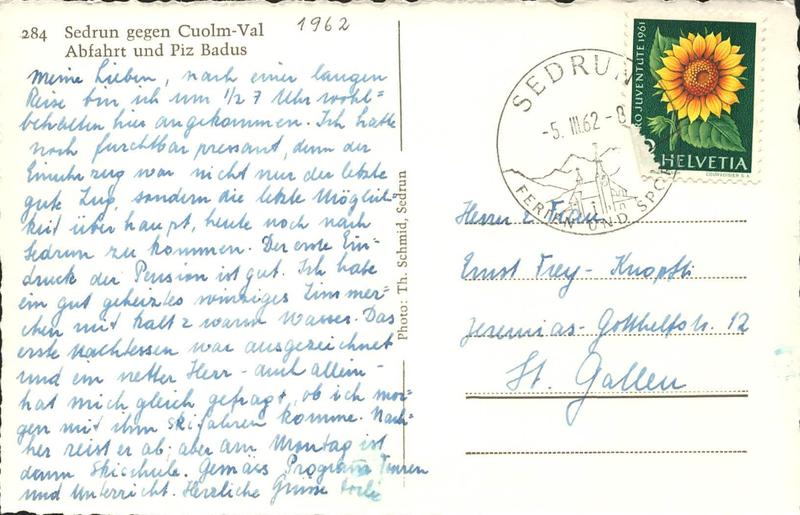 284 Sedrun gegen Cuolm-Val
Abfahrt und Piz Badus
1962
Meine Lieben, nach einer langen
Reise bin ich um 1/2 7 Uhr wohl=
behalten hier angekommen. Ich hatte
noch furchtbar pressant, denn der
Einuhrzug war nicht nur der letzte
gute Zug, sondern die letzte Möglich=
keit überhaupt, heute noch nach
Sedrun zu kommen. Der erste Ein-
druck der Pension ist gut. Ich habe
ein gut geheiztes winziges Zimmer-
chen mit kalt & warm Wasser. Das
erste Nachtessen war ausgezeichnet
und ein netter Herr - auch allein -
hat mich gleich gefragt, ob ich mor-
gen mit ihm skifahren komme. Nach-
her reist er ab; aber am Montag ist
dann Skischule. Gemäss Programm Touren
und Unterricht. Herzliche Grüsse
Photo: Th. Schmid, Sedrun
SEDRUN
-5.III.62-8
FERIEN UND SPO
PRO JUVENTUTE 1961
HELVETIA
COURVOISIER S.A.
Herrn & Frau
Ernst Frey-Knopfli
Jeremias-Gotthelfstr. 12
St. Gallen